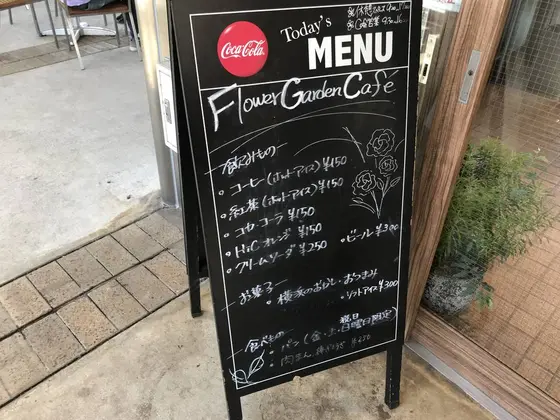 Coca-Cola
Today's
MENU
Flower Garden Café
飲みもの
・コーヒー(ホット・アイス)¥150
・紅茶(ホット・アイス)¥150
・コカ・コーラ ¥150
・Hi-C オレンジ ¥150
・クリームソーダ ¥250
・ビール ¥300
お菓子
・横浜のおかし・おつまみ
・ソフトアイス ¥300
食べもの
・パン(金・土・日曜日限定)
祝日
・肉まん